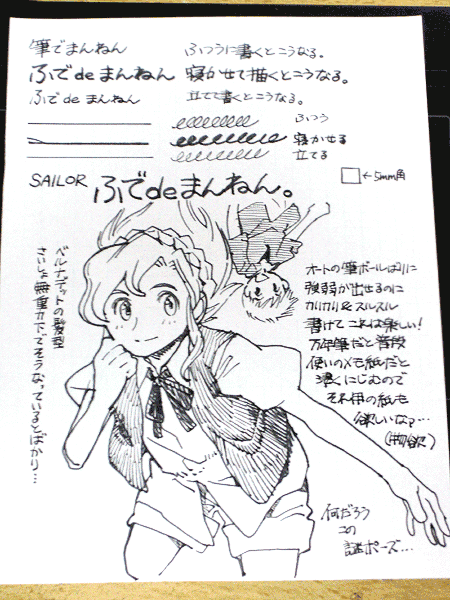 筆でまんねん ふつうに書くとこうなる。
ふでdeまんねん 寝かせて描くとこうなる。
ふでdeまんねん 立てて書くとこうなる。
ふつう
寝かせる
立てる
SAILOR ふでdeまんねん。
←5mm角
ベルナデットの髪型
さいしょ無重力下でそうなっているとばかり…
オートの筆ボールばりに
強弱が出せるのに
カリカリ&スルスル
書けてこれは楽しい!
万年筆だと普段
使いのメモ紙だと
濃くにじむので
それ用の紙も
欲しいなァ…
(物欲)
何だろう
この
謎ポーズ…